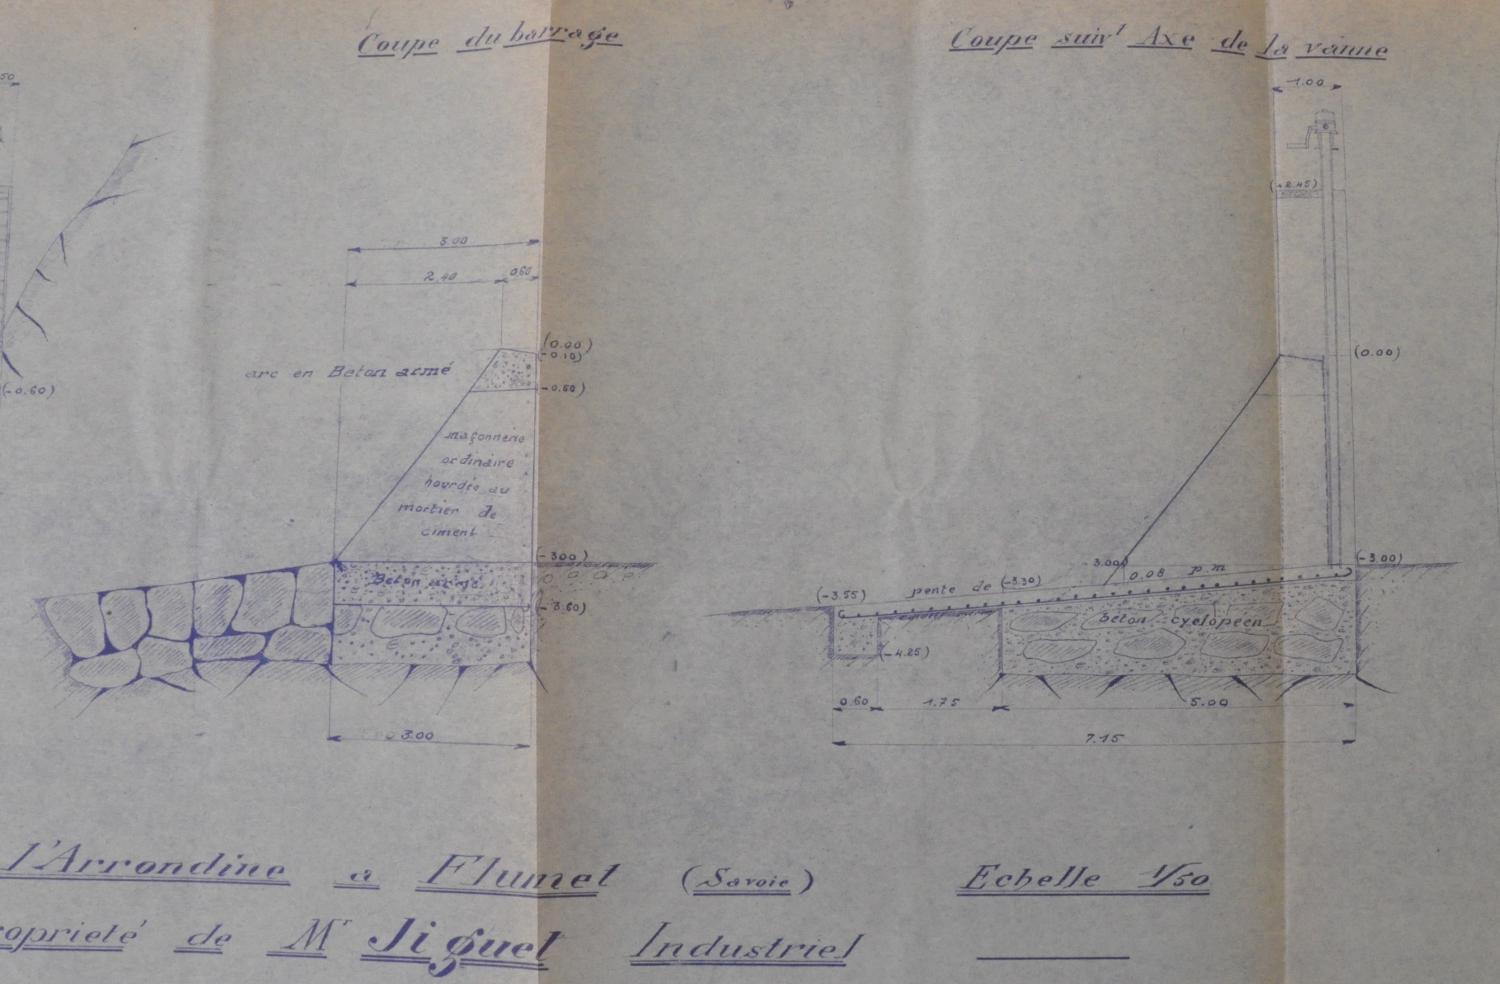 Coupe du barrage
Coupe suivt Axe de la vanne
50
1.00
(+2.45)
3.00
2.40
0.60
(0.00)
(-0.10)
(0.00)
arc en Beton armé
-0.60)
(-0.60)
maçonnerie
ordinaire
hourdée au
mortier de
ciment
(-3.00)
-3.00)
(-3.00)
Beton armé
pente de
(-3.30)
0.08 p.m
(-3.55)
(-3.60)
Béton cyclopéen
(-4.25)
0.60
1.75
5.00
3.00
7.15
l'Arrondine a Flumet (Savoie)
Echelle 1/50
opriété de Mr Jiguet Industriel